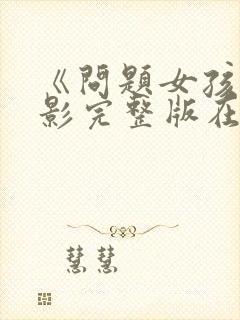 《問題女孩
影完整版在
慧慧